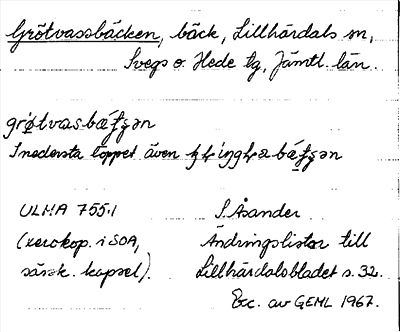 Grötvassbäcken, bäck, Lillhärdals sn,
Svegs o. Hede tg, Jämtl. län.
Inedersta loppet även
ULMA 755:1 S. Åsander
(xerokop. i SOA, Ändringslistor till
särsk. kapsel). Lillhärdalsbladet s. 32.
Exc. av GEHL 1967.